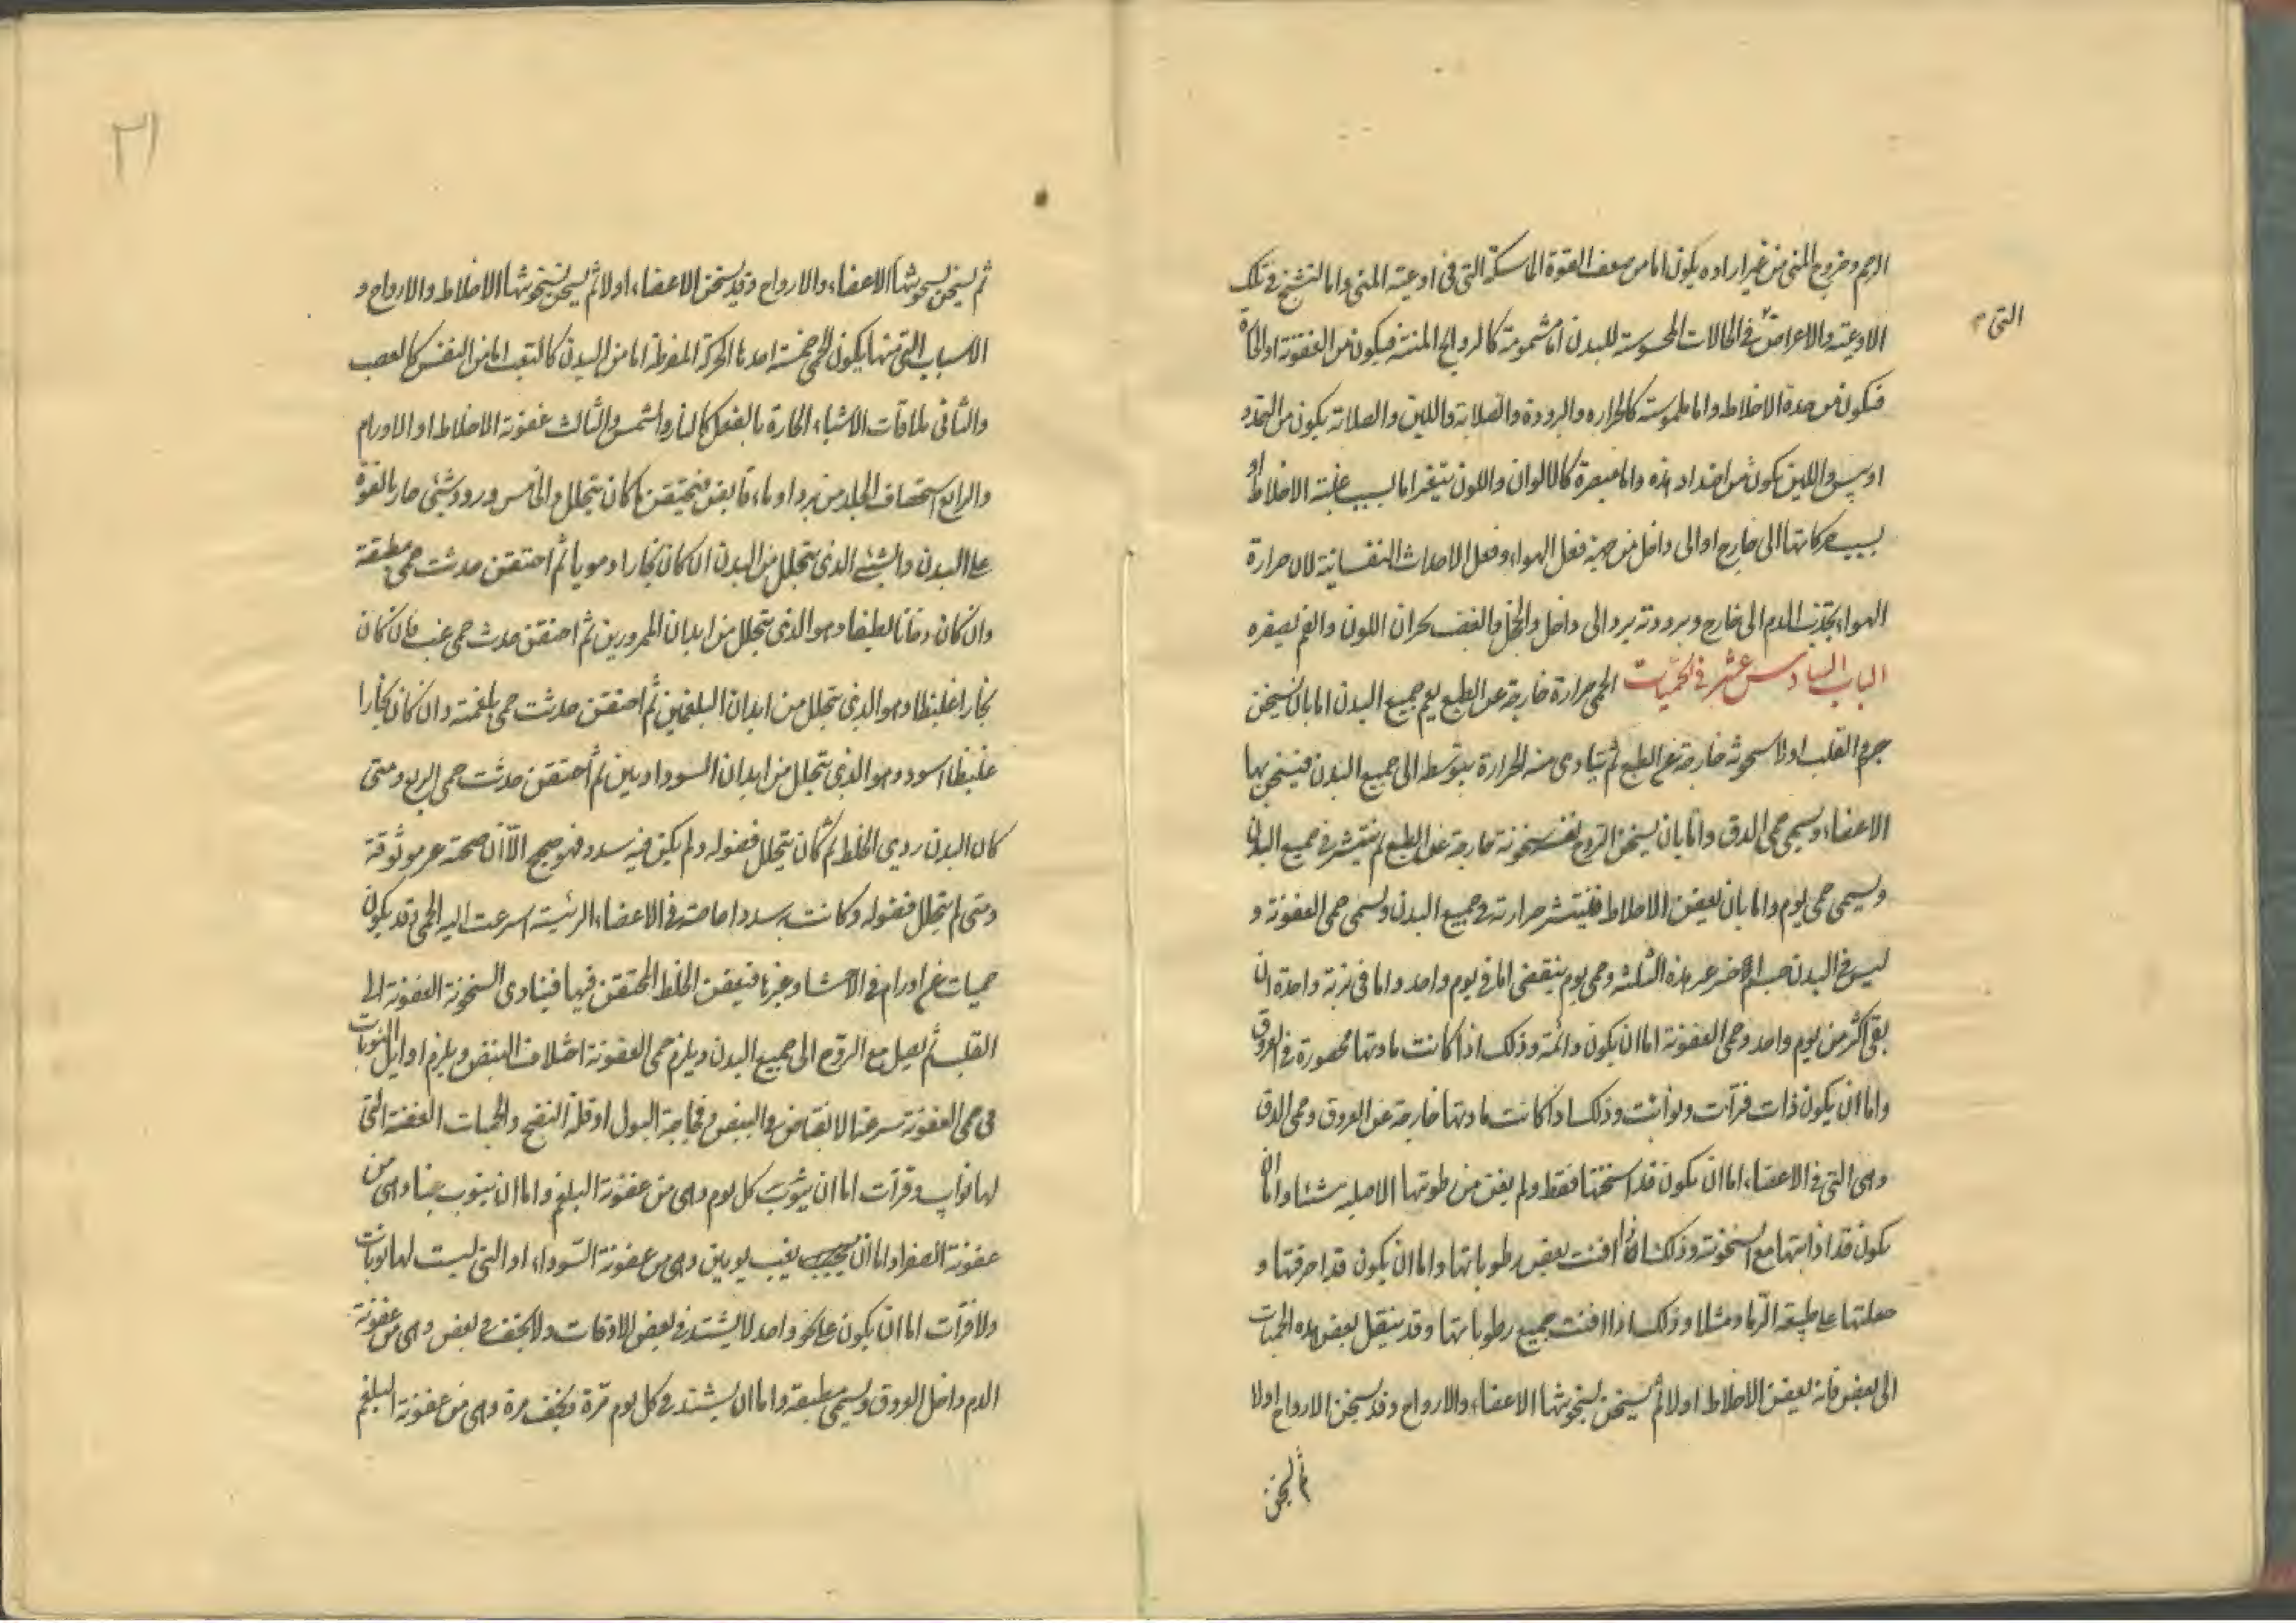 الرحم وخروج المنى من غير اراده يكون اما من ضعف القوة الماسكة التى فى اوعية المنى واما لتشنج فى تلك
التى
الاوعية والاعراض فى الحالات المحسوسة للبدن اما مشمومة كالروايح المنتنة فيكون من العفونة او الحادة
فيكون من حدة الاخلاط واما ملموسة كالحراره والبرودة والصلابة واللين والصلابة يكون من التمدد
او يبس واللين يكون من اضداد هذه واما مبصرة كالالوان واللون يتغير اما بسبب غلبة الاخلاط او
بسبب حركاتها الى خارج او الى داخل من جهة فعل الهواء وفعل الاحداث النفسانية لان حرارة
الهواء يجذب الدم الى خارج وبرودته يرد الى داخل والخجل والغضب يحمران اللون والغم يصفره
الباب السادس عشر فى الحميات الحمى حرارة خارجة عن الطبع يعم جميع البدن اما بان يسخن
جرم القلب اولا سخونة خارجة عن الطبع ثم يتادى منه الحرارة بتوسطه الى جميع البدن فيسخن بها
الاعضاء ويسمى حمى الدق واما بان يسخن الروح نفسه سخونة خارجة عن الطبع ثم ينتشر فى جميع البدن
ويسمى حمى يوم واما بان يعفن الاخلاط فينتشر حرارته فى جميع البدن ويسمى حمى العفونة و
ليس فى البدن جسم اخر غير هذه الثلثة وحمى يوم ينقضى اما فى يوم واحد واما فى نوبة واحدة ان
بقى اكثر من يوم واحد وحمى العفونة اما ان يكون دائمة وذلك اذا كانت مادتها محصورة فى العروق
واما ان يكون ذات فترات ونوائب وذلك اذا كانت مادتها خارجة عن العروق وحمى الدق
وهى التى فى الاعضاء اما ان يكون قد اسخنتها فقط ولم يفن من رطوبتها الاصليه شئا واما ان
يكون قد اذابتها مع السخونة وذلك اذا افنت بعض رطوباتها واما ان يكون قد احرقتها و
جعلتها على طبيعة الرماد مثلا وذلك اذا افنت جميع رطوباتها وقد ينتقل بعض هذه الحميات
الى بعض فانه يعفن الاخلاط اولا ثم يسخن بسخونتها الاعضاء والارواح وقد يسخن الارواح اولا
ثم يسخن
٣١
ثم يسخن بسخونتها الاعضاء والارواح وقد يسخن الاعضاء اولا ثم يسخن بسخونتها الاخلاط والارواح و
الاسباب التى منها يكون الحمى خمسة احدها الحركة المفرطة اما من البدن كالتعب اما من النفس كالغضب
والثانى ملاقات الاشياء الحارة بالفعل كالنار والشمس والثالث عفونة الاخلاط او الاورام
والرابع استحصاف الجلد من برد او ماء قابض فيحتقن ما كان يتحلل والخامس ورود شئى حار بالقوة
على البدن والشئ الذى يتحلل من البدن ان كان بخارا دمويا ثم احتقن حدثت حمى مطبقة
وان كان دخانا لطيفا وهو الذى يتحلل من ابدان الممرورين ثم احتقن حدثت حمى غب وان كان
بخارا غليظا وهو الذى يتحلل من ابدان البلغميين ثم احتقن حدثت حمى بلغمية وان كان بخارا
غليظا اسود وهو الذى يتحلل من ابدان السوداويين ثم احتقن حدثت حمى الربع ومتى
كان البدن ردى الخلط ثم كان يتحلل فضوله ولم يكن فيه سدد فهو صحيح الا ان صحته غير موثوقة
ومتى لم يتحلل فضوله وكانت به سدد خاصة فى الاعضاء الرئيسة اسرعت اليه الحمى وقد يكون
حميات عن اورام فى الاحشاء وغيرها فيعفن الخلط المحتقن فيها فيتادى السخونة العفونة الى
القلب ثم يصل مع الروح الى جميع البدن ويلزم حمى العفونة اختلاف النبض ويلزم اوايل النوبات
فى حمى العفونة سرعة الانقباض والنبض وفجاجة البول او قلة النضج والحميات العفنة التى
لها نوايب وفترات اما ان ينوب كل يوم وهى من عفونة البلغم واما ان ينوب غبا وهى من
عفونة الصفرا واما ان يغب يومين وهى من عفونة السوداء او التى ليست لها نوبات
ولا فترات اما ان يكون على نحو واحد لا يشتد فى بعض الاوقات ولا يخف فى بعض وهى من عفونة
الدم داخل العروق ويسمى مطبقة واما ان يشتد فى كل يوم مرة ويخف مرة وهى من عفونة البلغم